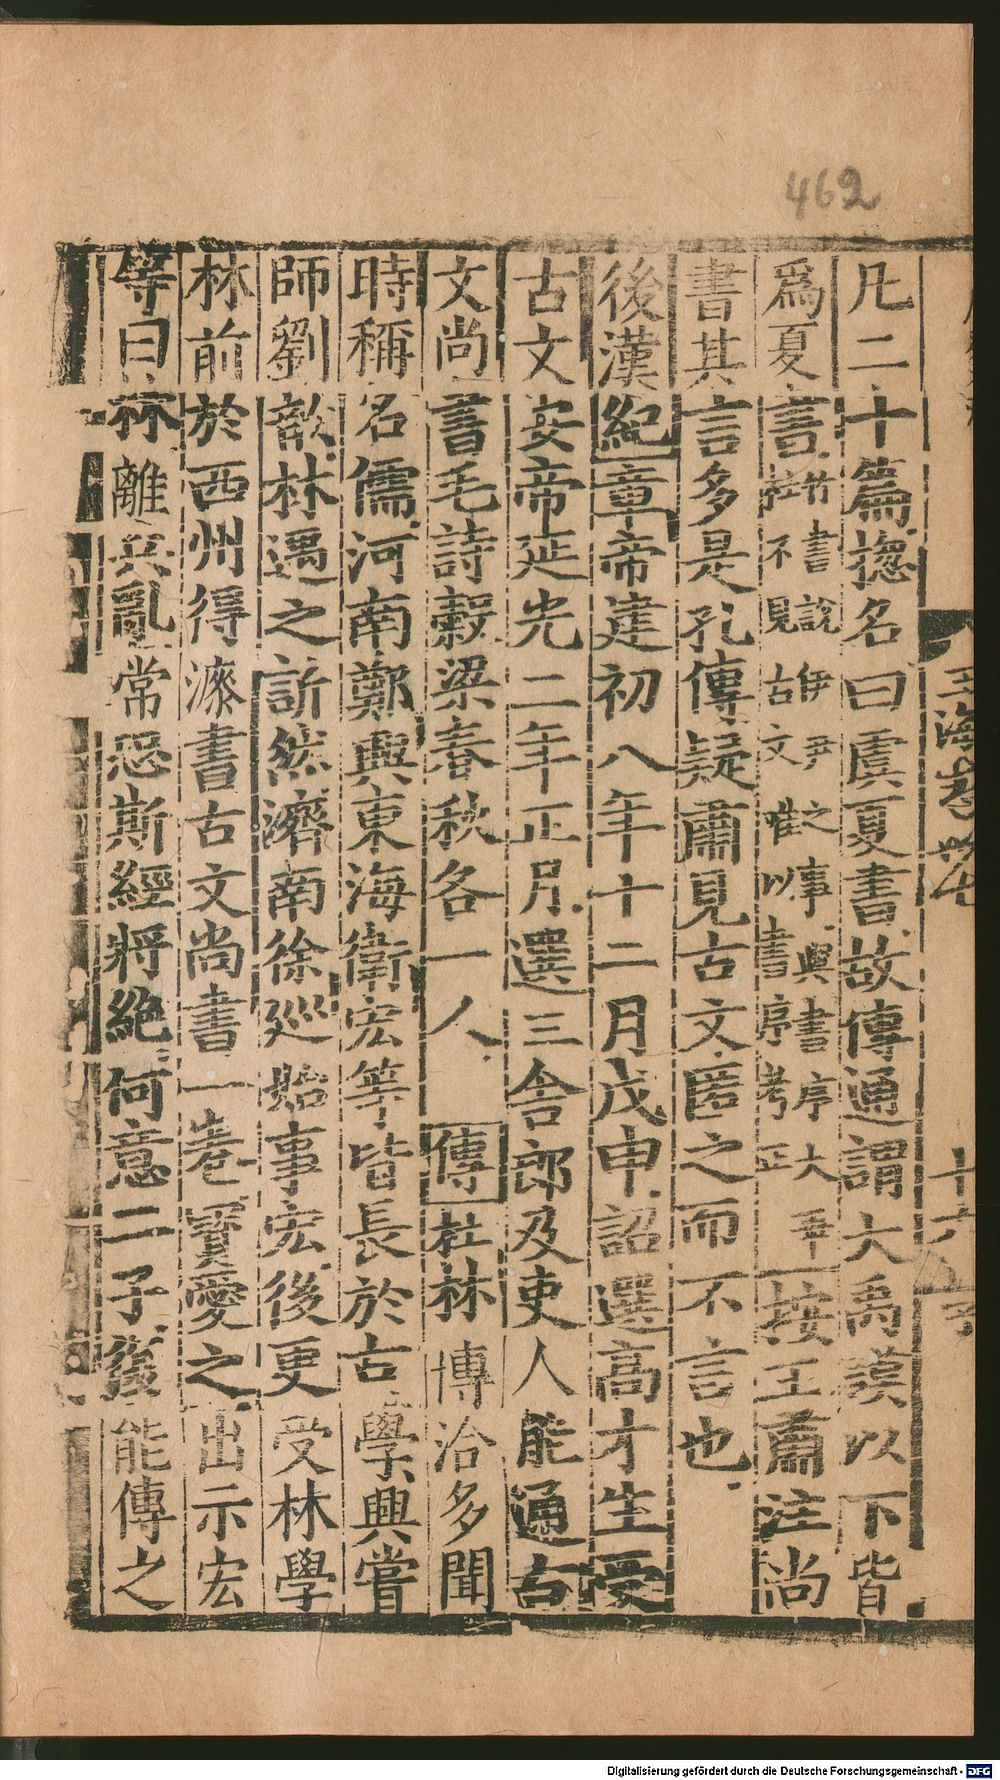 462
凡二十篇揔名曰虞夏書故傳通謂大禹謨以下皆
爲夏言
竹書説伊尹之事與書序大乖
杜不見古文唯以書亭考正
按王肅注尚
書其言多是孔傳疑肅見古文匿之而不言也
後漢紀章帝建初八年十二月戊申詔選高才生受
古文安帝延光二年正月選三舍郎及吏人能通古
文尚書毛詩穀梁春秋各一人 傳杜林博洽多聞
時稱名儒河南鄭興東海衛宏等皆長於古學興嘗
師劉歆林遇之訢然濟南徐巡始事宏後更受林學
林前於西州得漆書古文尚書一卷寳愛之出示宏
等曰林離兵亂常恐斯經將絶何意二子復能傳之
玉海卷卅七
十六
Digitalisierung gefördert durch die Deutsche Forschungsgemeinschaft - DFG